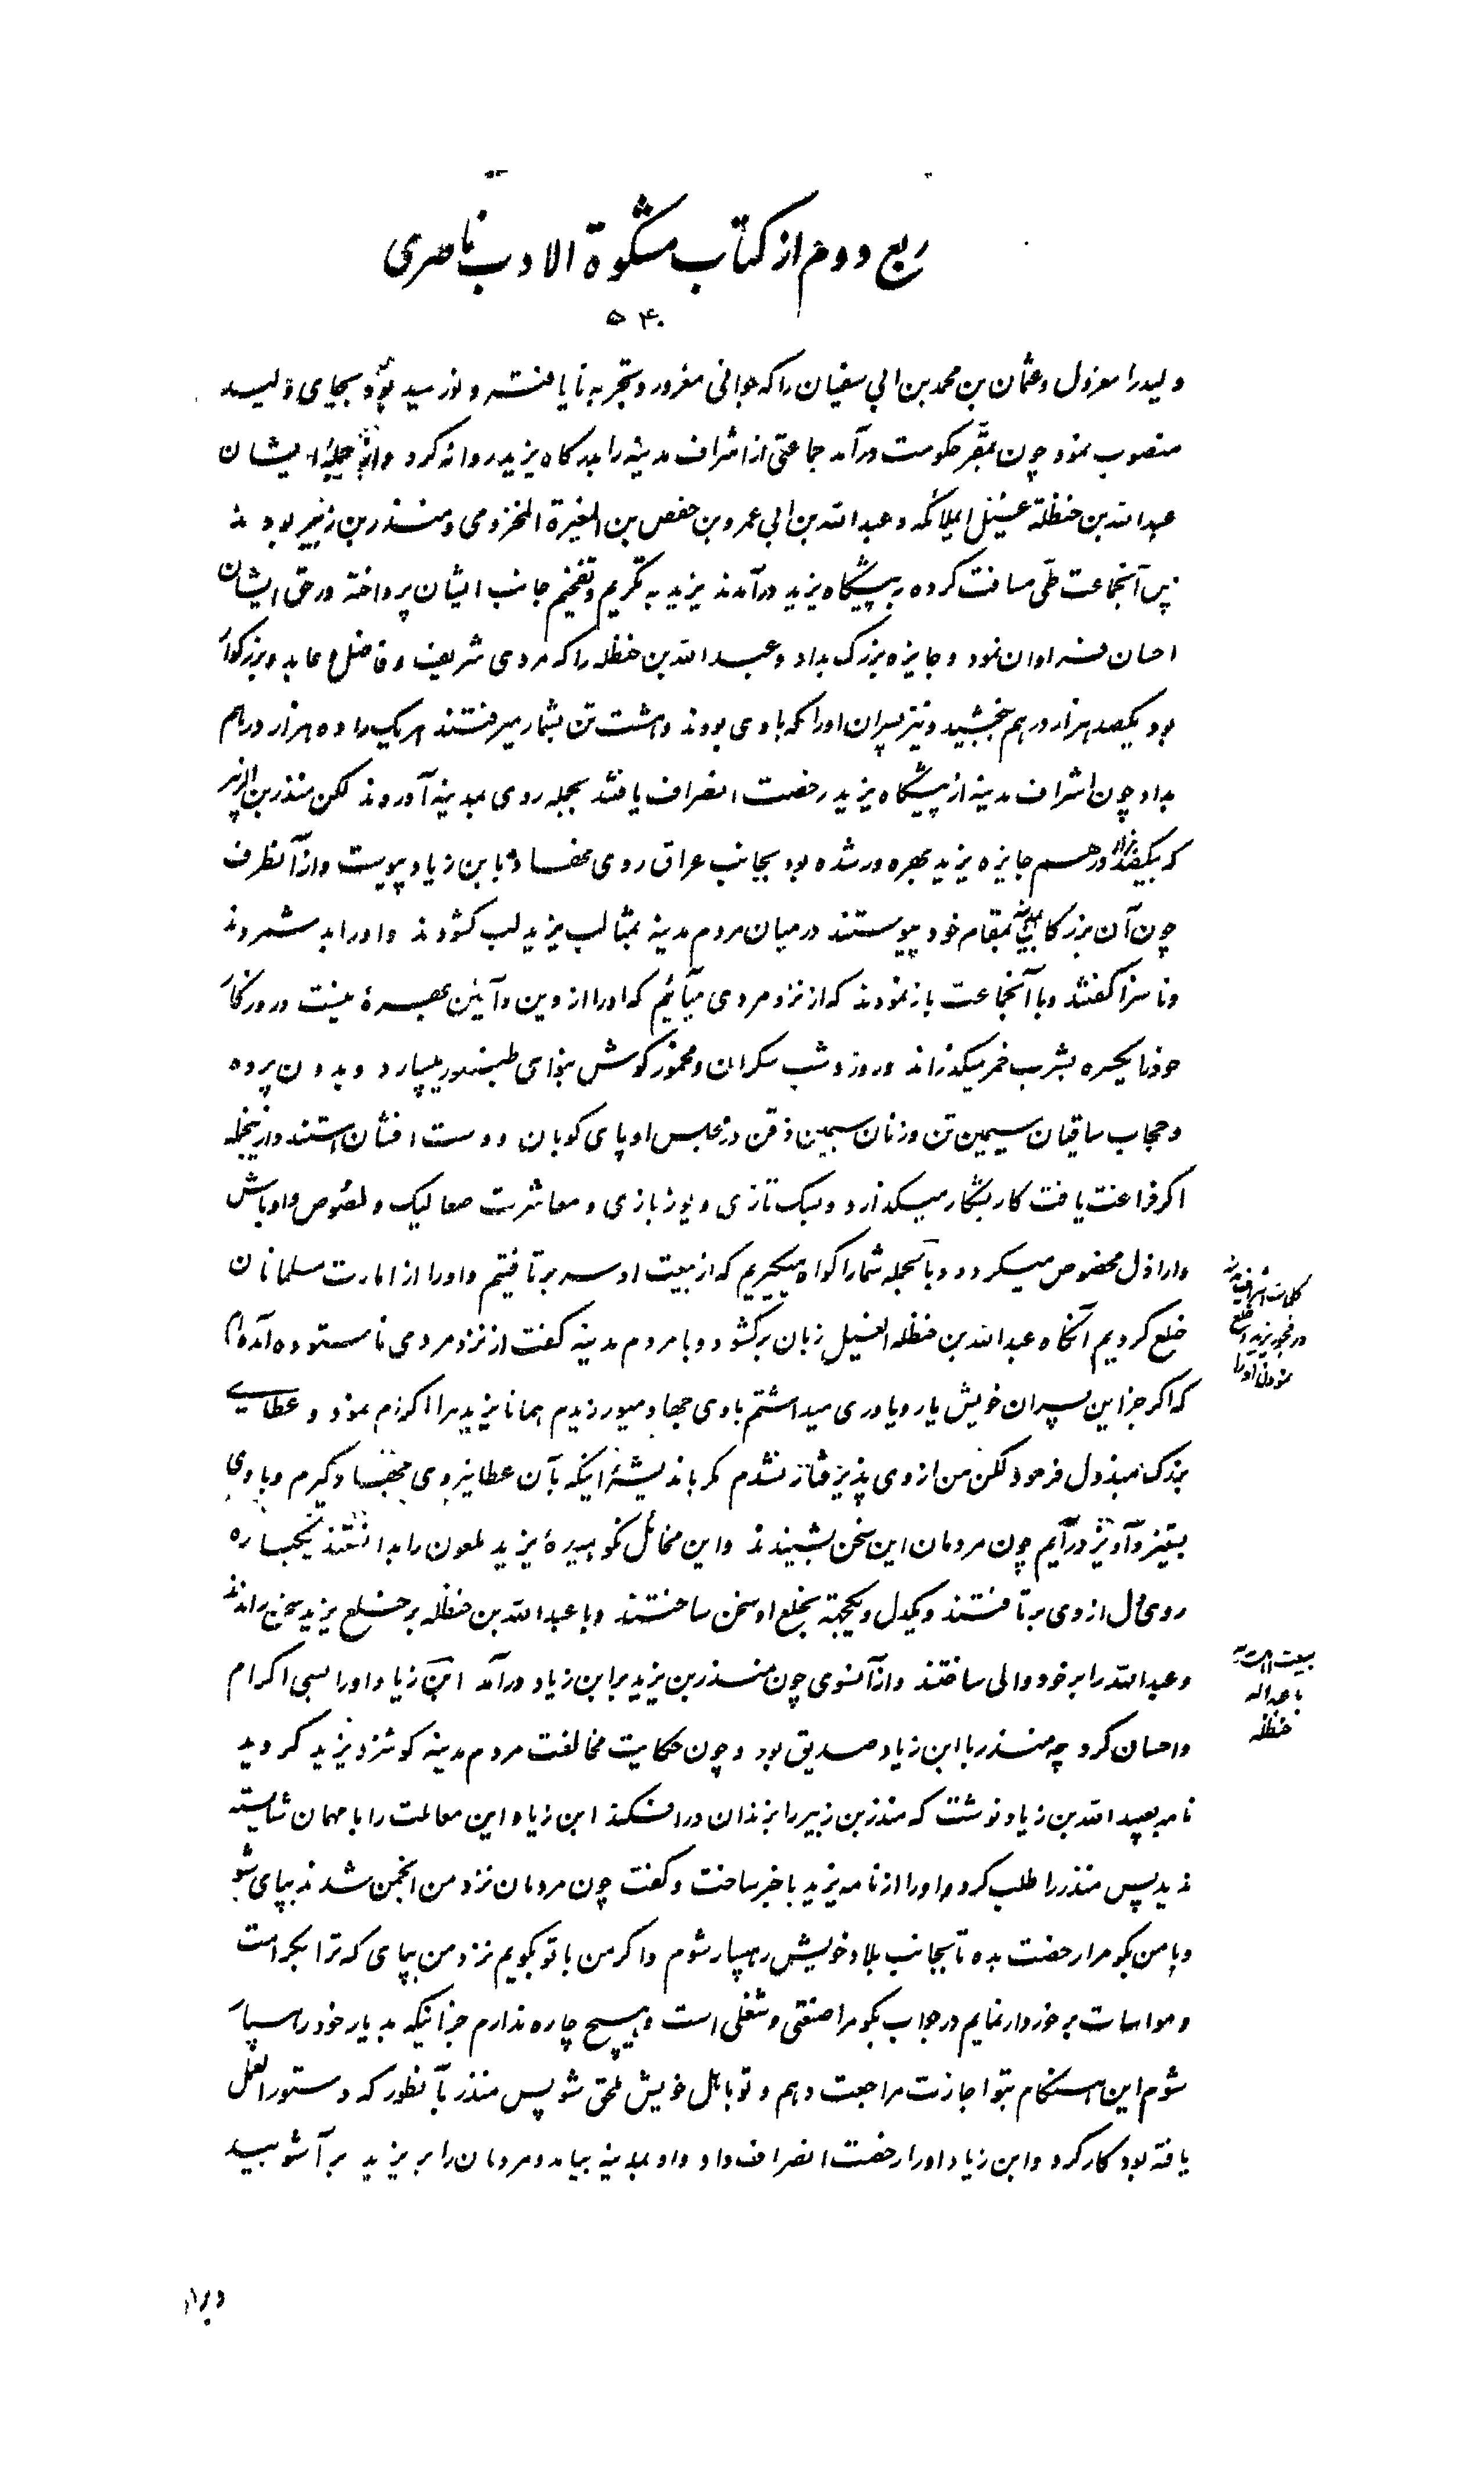 ربع دوم از کتاب مشکوة الادب ناصری
۵۴۰
ولید را معزول و عثمان بن محمد بن ابی سفیان را که جوانی مغرور و تجربه نا یافته و نورسید بود بجای ولید
منصوب نمود چون بمقر حکومت درآمد جماعتی از اشراف مدینه را بدرکاه یزید روانه کرد و از جمله ایشان
عبدالله بن حنظلة غسیل الملائکه و عبدالله بن ابی عمرو بن حفص بن المغیرة المخزومی و منذر بن زبیر بودند
پس آنجماعت طی مسافت کرده به پیشکاه یزید درآمدند یزید به تکریم و تفخیم جانب ایشان پرداخته در حق ایشان
احسان فراوان نمود و جایزه بزرک بداد و عبدالله بن حنظله را که مردی شریف و فاضل و عابد و بزرکوار
بود یکصد هزار درهم ببخشید و نیز پسران او را که با وی بودند و هشت تن بشمار میرفتند هریک را ده هزار دراهم
بداد چون اشراف مدینه از پیشکاه یزید رخصت انصراف یافتند بجمله روی بمدینه آوردند لکن منذر بن الزبیر
که بیکصد هزار درهم جایزه یزید بهره ور شده بود بجانب عراق روی نهاد و با بن زیاد پیوست و از آنطرف
چون آن بزرکان بمدینه بمقام خود پیوستند در میان مردم مدینه بمثالب یزید لب کشودند و او را بد شمردند
و ناسزا کفتند و با آنجماعت باز نمودند که از نزد مردی میآئیم که او را از دین و آئین بهره نیست و روزکار
خود را یکسره بشرب خمر میکذراند و روز و شب سکران و مخمور کوش بنوای طنبور میسپارد و بدون پرده
و حجاب ساقیان سیمین تن و زنان سیمین ذقن در مجلس او پای کوبان و دست افشان هستند و از اینجمله
اکر فراغت یافت کار بشکار میکذارد و بسک تازی و یوز بازی و معاشرت صعالیک و لصوص و اوباش
و اراذل مخصوص میکردد و بالجمله شما را کواه میکیریم که از بیعت او سر برتافتیم و او را از امارت مسلمانان
خلع کردیم آنکاه عبدالله بن حنظله الغسیل زبان برکشود و با مردم مدینه کفت از نزد مردی ناستوده آمده‌ام
که اکر جز این پسران خویش یار و یاوری میداشتم با وی جهاد میورزیدم همانا یزید مرا اکرام نمود و عطائی
بزرک مبذول فرمود لکن من از وی پذیرفتار نشدم مکر باندیشهٔ اینکه بآن عطا نیروی جهاد کیرم و با وی
بستیز و آویز درآیم چون مردمان این سخن بشنیدند و این مخائل نکوهیدهٔ یزید ملعون را بدانستند یکباره
روی دل از وی برتافتند و یکدل و یکجهة بخلع او سخن ساختند و با عبدالله بن حنظله بر خلع یزید سخن راندند
و عبدالله را بر خود والی ساختند و از آنسوی چون منذر بن یزید بر ابن زیاد درآمد ابن زیاد او را بسی اکرام
و احسان کرد چه منذر با ابن زیاد صدیق بود و چون حکایت مخالفت مردم مدینه کوشزد یزید کردید
نامه بعبیدالله بن زیاد نوشت که منذر بن زبیر را بزندان درافکند ابن زیاد این معاملت را با مهمان شایسته
ندید پس منذر را طلب کرد و او را از نامه یزید باخبر ساخت و کفت چون مردمان نزد من انجمن شدند بپای شو
و با من بکو مرا رخصت بده تا بجانب بلاد خویش رهسپار شوم و اکر من با تو بکویم نزد من بپای که ترا بکرامت
و مواسات برخوردار نمایم در جواب بکو مرا صنعتی و شغلی است و هیچ چاره ندارم جز اینکه بدیار خود رهسپار
شوم این هنکام بتو اجازت مراجعت دهم و تو باهل خویش ملحق شو پس منذر بآنطور که دستورالعمل
یافته بود کار کرد و ابن زیاد او را رخصت انصراف داد و او بمدینه بیامد و مردمان را بر یزید برآشوبید
کلمات اشراف مدینه
در فجور یزید و خلع
نمودن او را
بیعت اهل مدینه
با عبدالله
حنظله